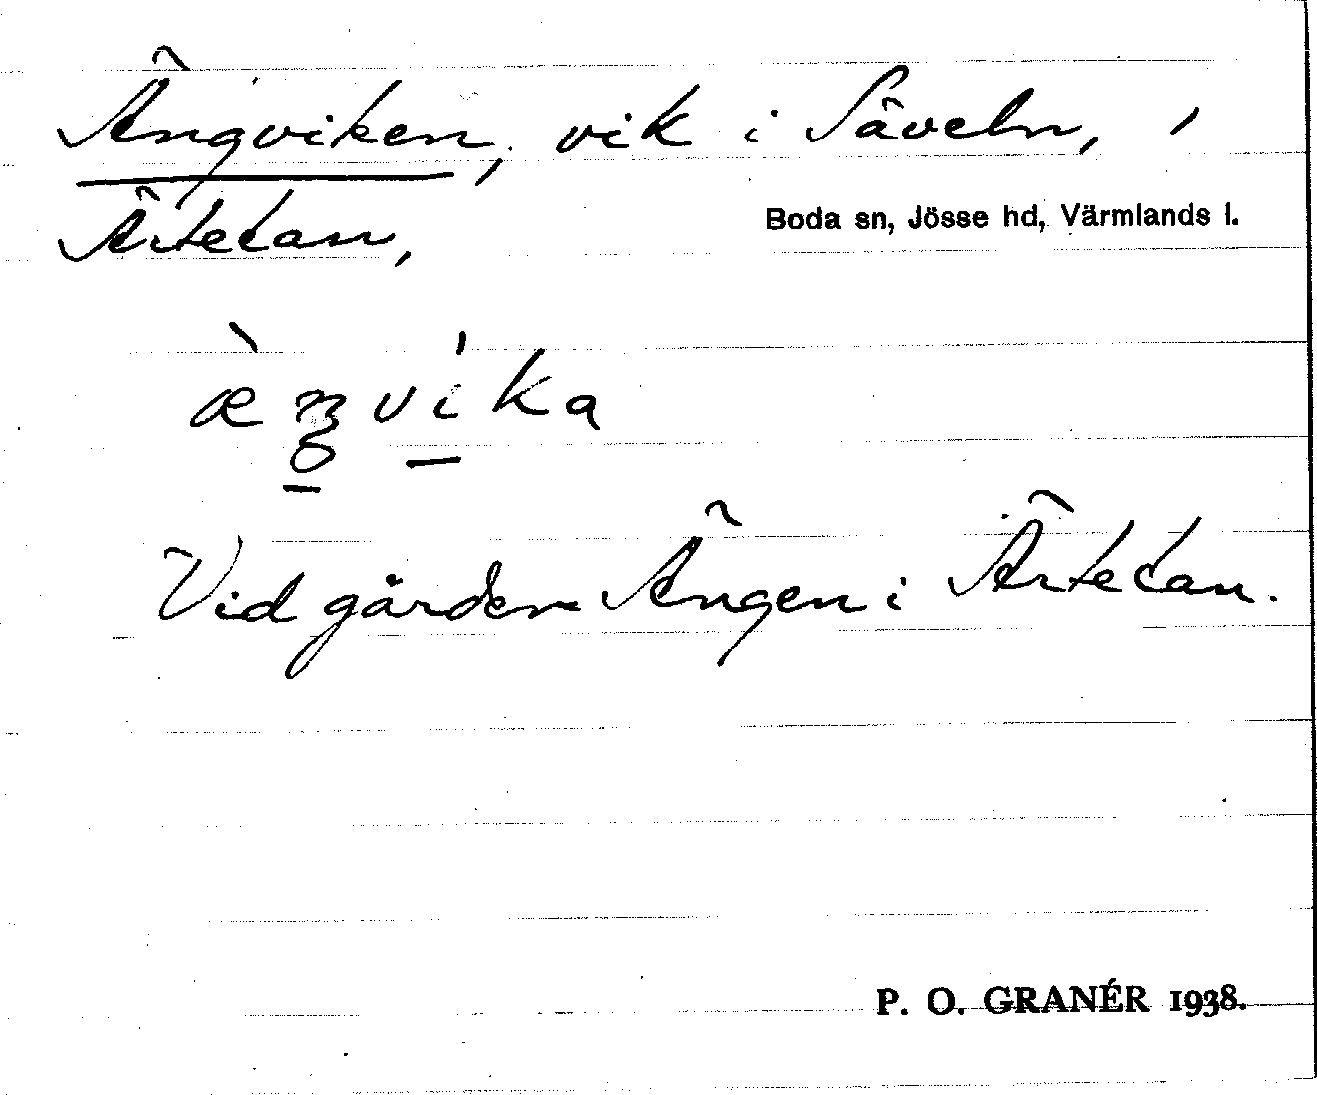 Ängviken, vik i Säveln, i
Ärtetan,
Boda sn, Jösse hd, Värmlands l.
æ̀ŋvíka
Vid gården Ängen i Ärtetan.
P. O. GRANÉR 1938.